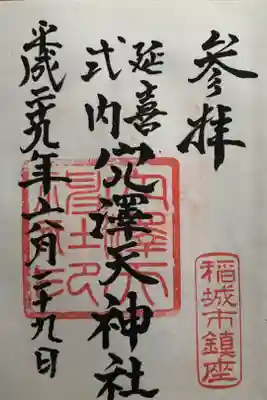 参拝
稲城市鎮座
延喜
式内
穴澤天神社
平成二九年六月二十九日